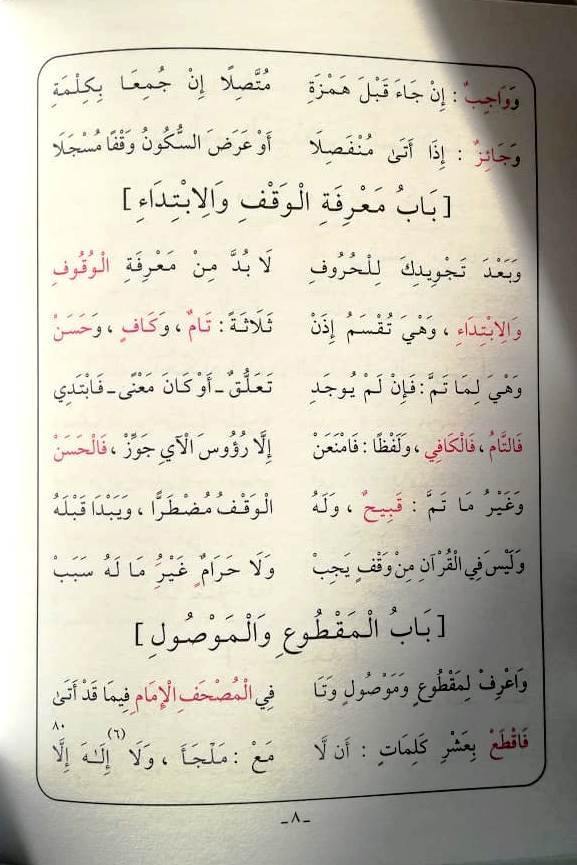 وَوَاجِبٌ : إِنْ جَاءَ قَبْلَ هَمْزَةِ مُتَّصِلًا إِنْ جُمِعَا بِكِلْمَةِ
وَجَائِزٌ : إِذَا أَتَىٰ مُنْفَصِلَا أَوْ عَرَضَ السُّكُونُ وَقْفًا مُسْجَلَا
[ بَابُ مَعْرِفَةِ الْوَقْفِ وَالِابْتِدَاءِ ]
وَبَعْدَ تَجْوِيدِكَ لِلْحُرُوفِ لَا بُدَّ مِنْ مَعْرِفَةِ الْوُقُوفِ
وَالِابْتِدَاءِ ، وَهْيَ تُقْسَمُ إِذَنْ ثَلَاثَةً : تَامٌ ، وَكَافٍ ، وَحَسَنْ
وَهْيَ لِمَا تَمَّ : فَإِنْ لَمْ يُوجَدِ تَعَلُّقٌ - أَوْ كَانَ مَعْنًى - فَابْتَدِي
فَالتَّامُ ، فَالْكَافِي ، وَلَفْظًا : فَامْنَعَنْ إِلَّا رُؤُوسَ الْآيِ جَوِّزْ ، فَالْحَسَنْ
وَغَيْرُ مَا تَمَّ : قَبِيحٌ ، وَلَهُ الْوَقْفُ مُضْطَرًّا ، وَيَبْدَا قَبْلَهُ
وَلَيْسَ فِي الْقُرْآنِ مِنْ وَقْفٍ يَجِبْ وَلَا حَرَامٍ غَيْرُِ مَا لَهُ سَبَبْ
[ بَابُ الْمَقْطُوعِ وَالْمَوْصُولِ ]
وَاعْرِفْ لِمَقْطُوعٍ وَمَوْصُولٍ وَتَا فِي الْمُصْحَفِ الْإِمَامِ فِيمَا قَدْ أَتَىٰ
٨٠
فَاقْطَعْ بِعَشْرِ كَلِمَاتٍ : أَن لَّا مَعْ : مَلْجَأَ ، وَلَا إِلَـٰهَ إِلَّا (٦)
-٨-